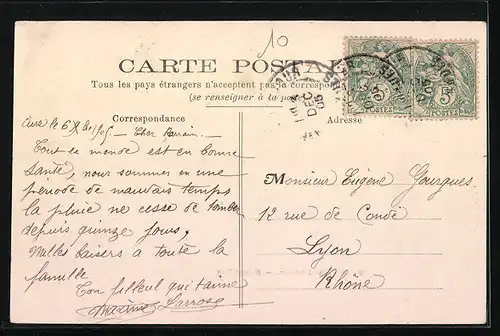 10
CARTE POSTALE
Tous les pays étrangers n'acceptent pas la correspondance
(se renseigner à la poste)
Correspondance
Adresse
5
POSTES
5
POSTES
DEC
05
le 6 Xbre 1905 Cher Parrain.
Tout le monde est en bonne
santé, nous sommes en une
période de mauvais temps
la pluie ne cesse de tomber
depuis quinze jours,
Milles baisers a toute la
famille
Ton filleul qui t'aime
Maxime Larrose
Monsieur Eugène Gourgues
12 rue de Condé
Lyon
Rhône